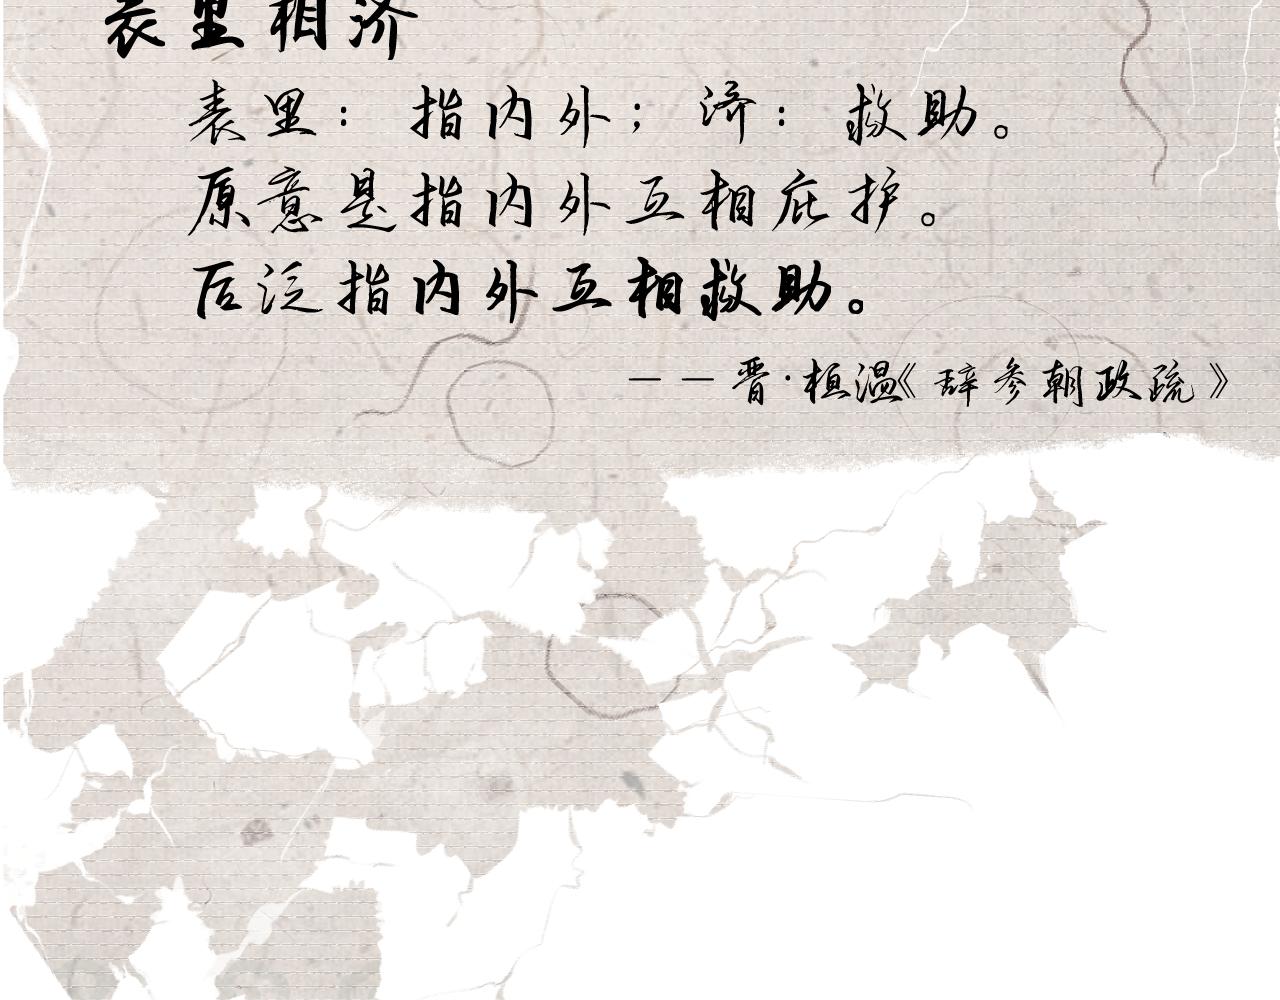 表里相济
表里：指内外；济：救助。
原意是指内外互相庇护。
后泛指内外互相救助。
——晋·桓温《辞参朝政疏》